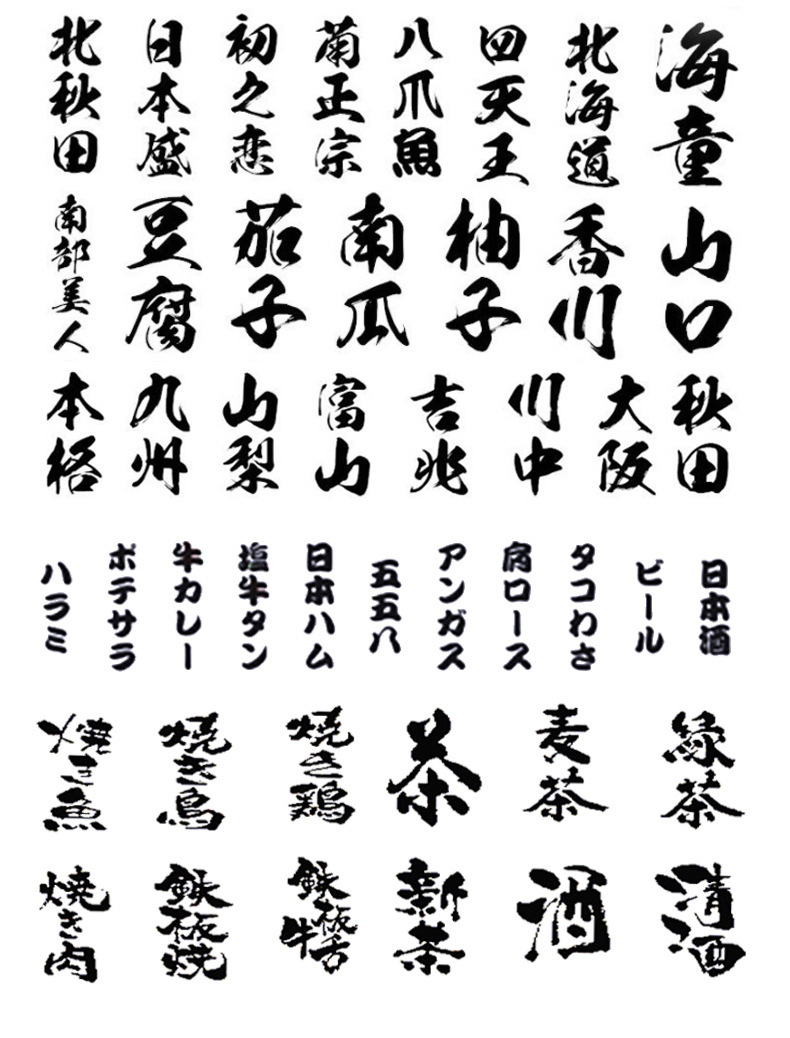 海童
北海道
四天王
八爪魚
菊正宗
初之恋
日本盛
北秋田
山口
香川
柚子
南瓜
茄子
豆腐
南部美人
秋田
大阪
川中
吉兆
富山
山梨
九州
本格
日本酒
ビール
タコわさ
肩ロース
アンガス
五五八
日本ハム
塩牛タン
牛カレー
ポテサラ
ハラミ
緑茶
麦茶
茶
焼き鶏
焼き鳥
焼き魚
清酒
酒
新茶
鉄板牛舌
鉄板焼
焼き肉